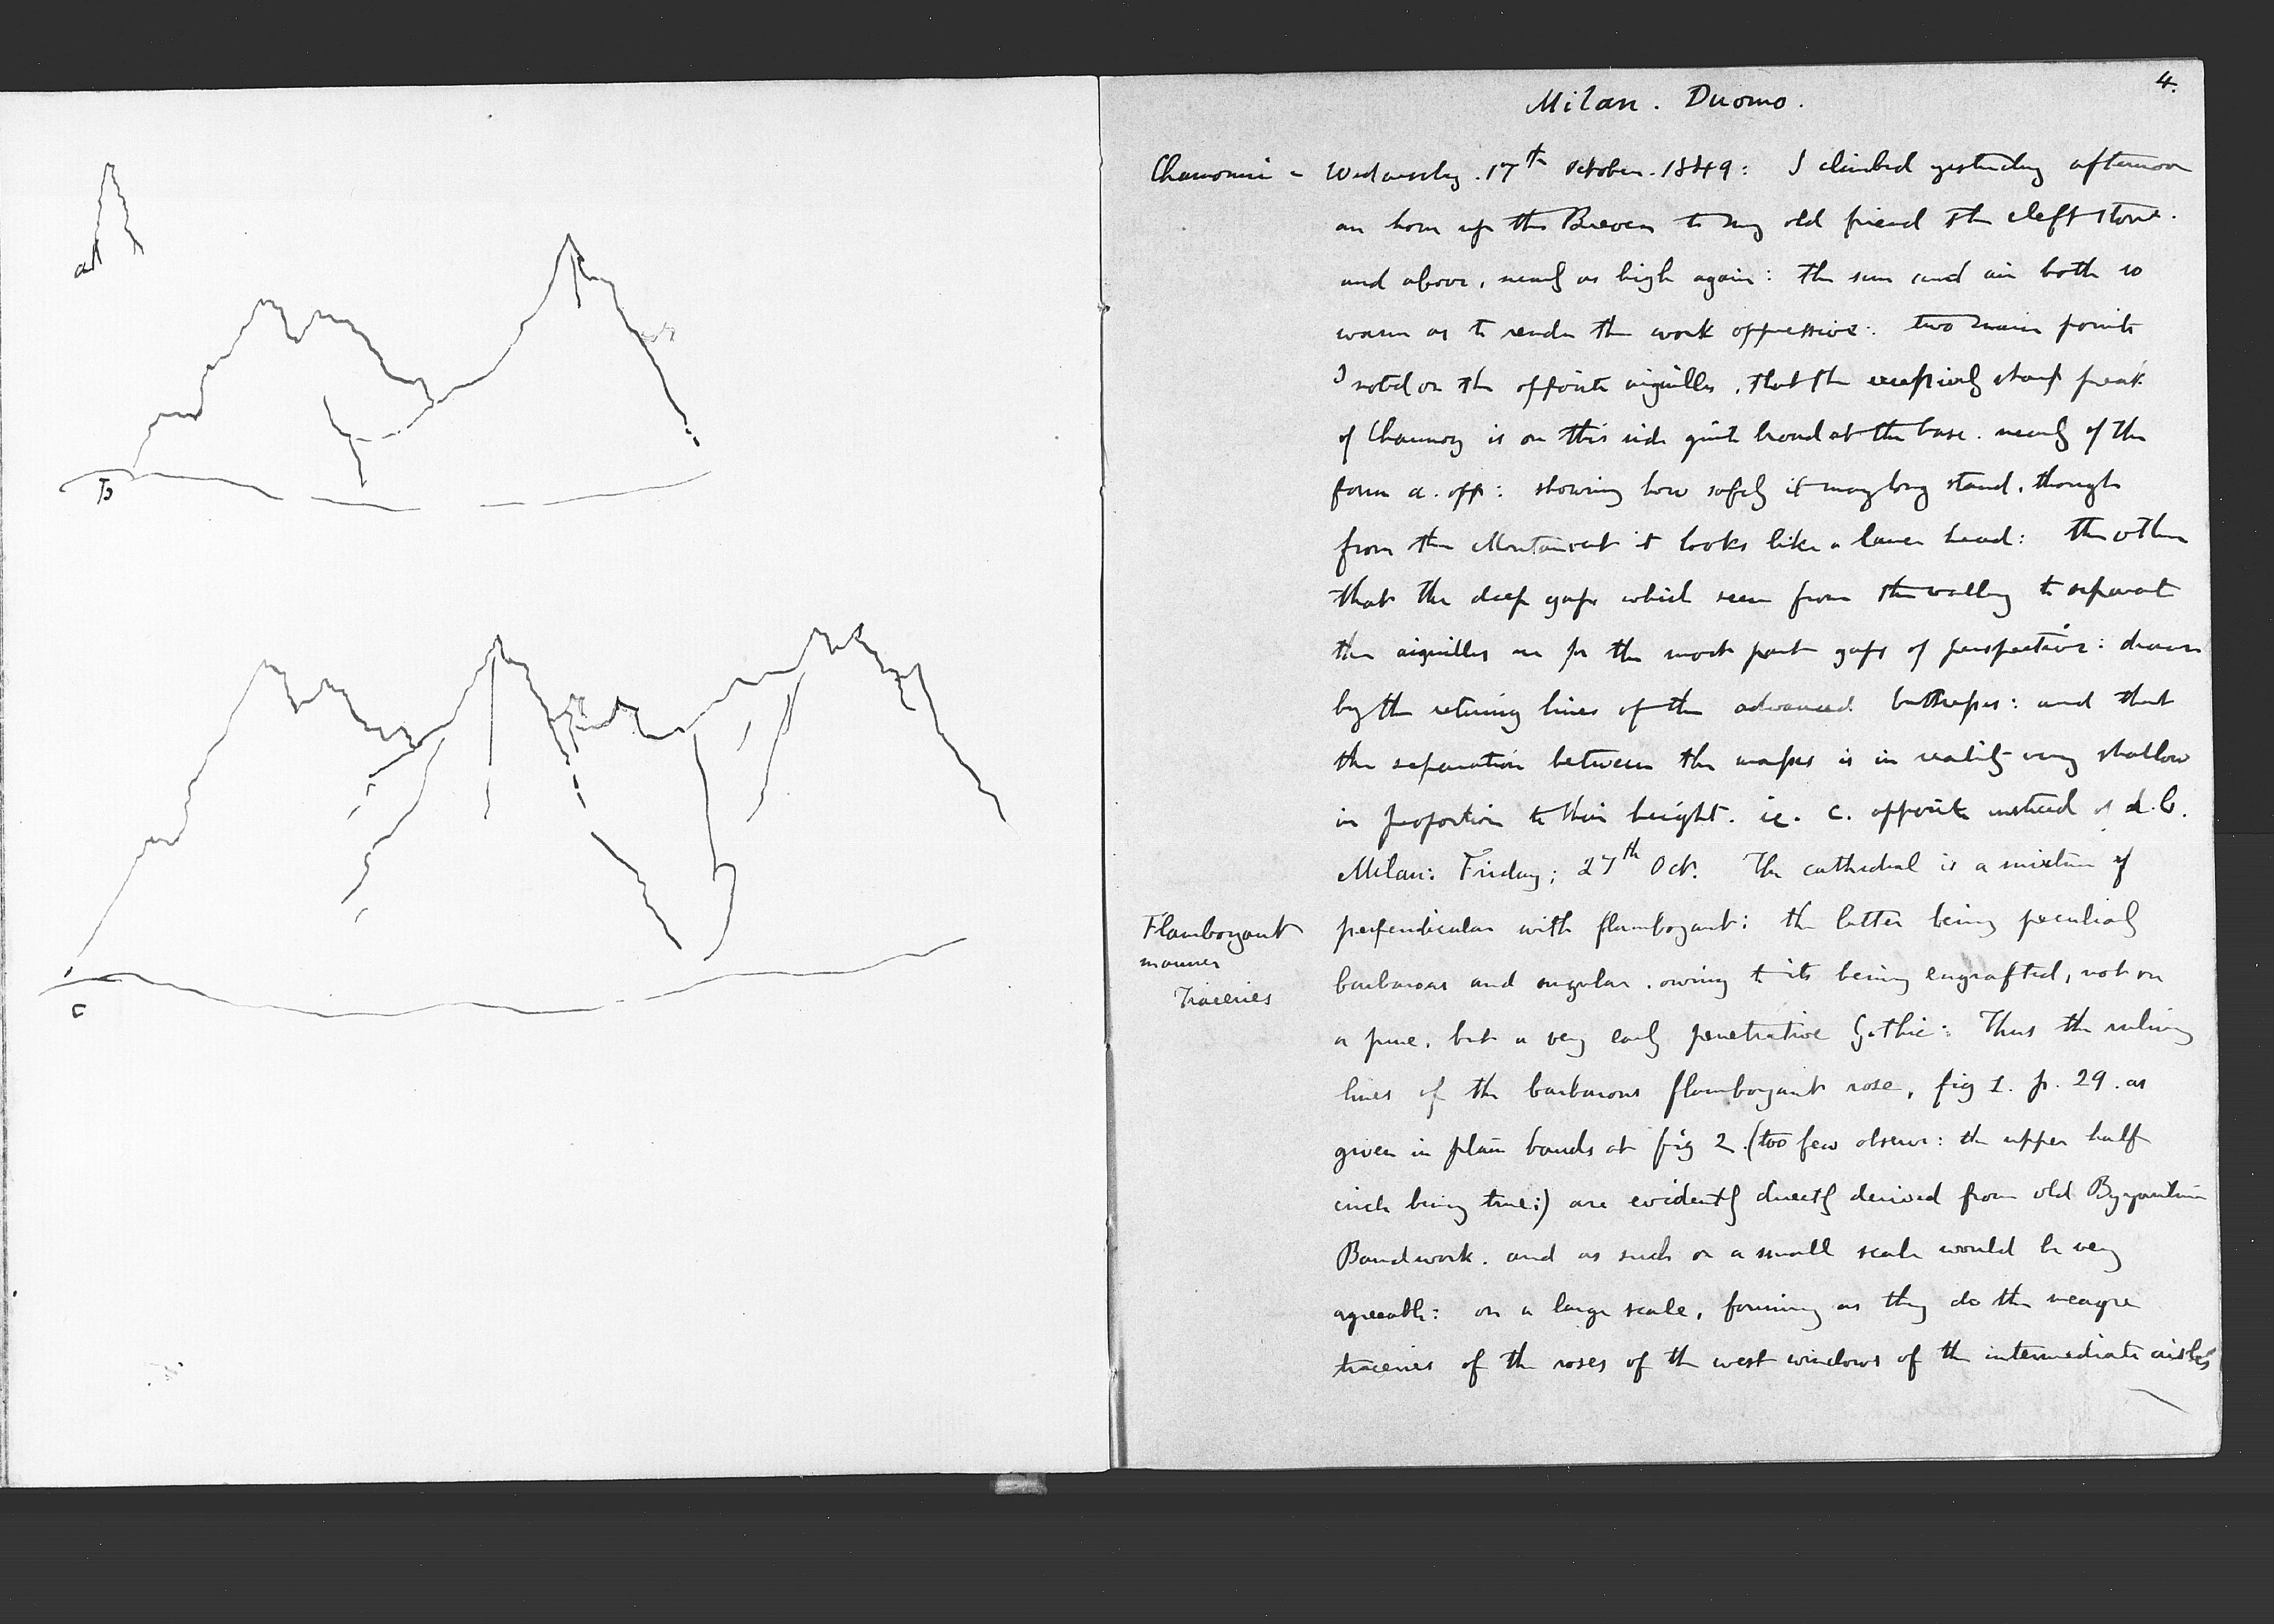 a
b
c
4.
Milan. Duomo.
Chamouni - Wednesday. 17th October. 1849: I climbed yesterday afternoon
an hour up the Breven to my old friend the cleft stone.
and above, nearly as high again: the sun and air both so
warm as to render the work oppressive: two main points
I noted on the opposite aiguilles, that the excessively sharp peak
of Charmoz is on this side quite broad at the base. nearly of the
form a. opp: showing how safely it may long stand, though
from the Montanvert it looks like a lance head: the other
that the deep gaps which seem from the valley to separate
the aiguilles are for the most part gaps of perspective: drawn
by the retiring lines of the advanced buttresses: and that
the separation between the masses is in reality very shallow
in proportion to their height. ie. c. opposite instead of b.
Milan: Friday; 27th Oct. The cathedral is a mixture of
Flamboyant
manner
Traceries
perpendicular with flamboyant: the latter being peculiarly
barbarous and angular. owing to its being engrafted, not on
a pure, but a very early penetrative Gothic: Thus the ruling
lines of the barbarous flamboyant rose, fig 1. p. 29. as
given in plain bands at fig 2. (too few observe: the upper half
circle being true:) are evidently directly derived from old Byzantine
Bandwork. and as such on a small scale would be very
agreeable: on a large scale, forming as they do the meagre
traceries of the roses of the west windows of the intermediate aisles